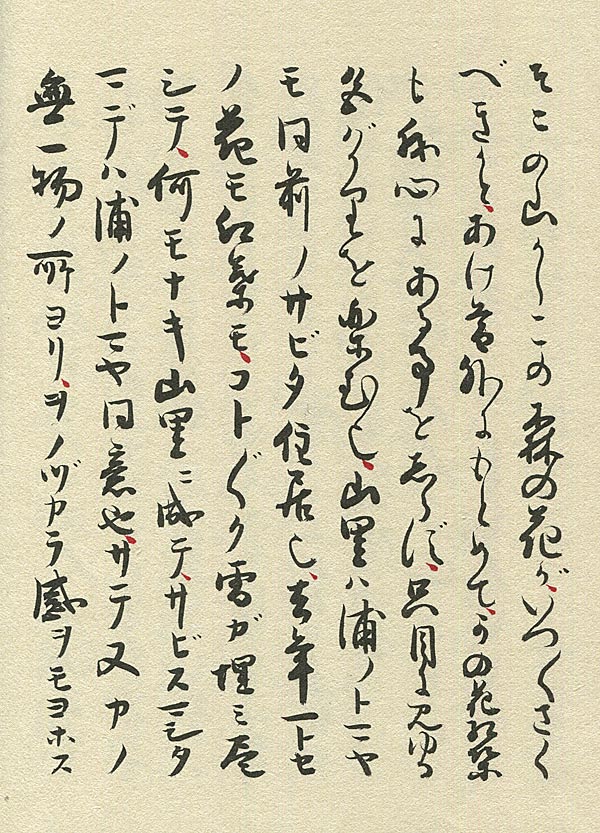 そこの山かしこの森の花が、いつ〱さく
べきかと、あけ暮外にもとめて、かの花紅葉
も我心にある事をしらず、只目に見ゆる
色ばかりを楽む也、山里ハ浦ノトマヤ
モ同前ノサビタ住居也、去年一トセ
ノ花モ紅葉モ、コト〲ク雪ガ埋ミ尽
シテ、何モナキ山里ニ成テ、サビスマシタ
マデハ浦ノトマヤ同意也、サテ又カノ
無一物ノ所ヨリ、ヲノヅカラ感ヲモヨホス